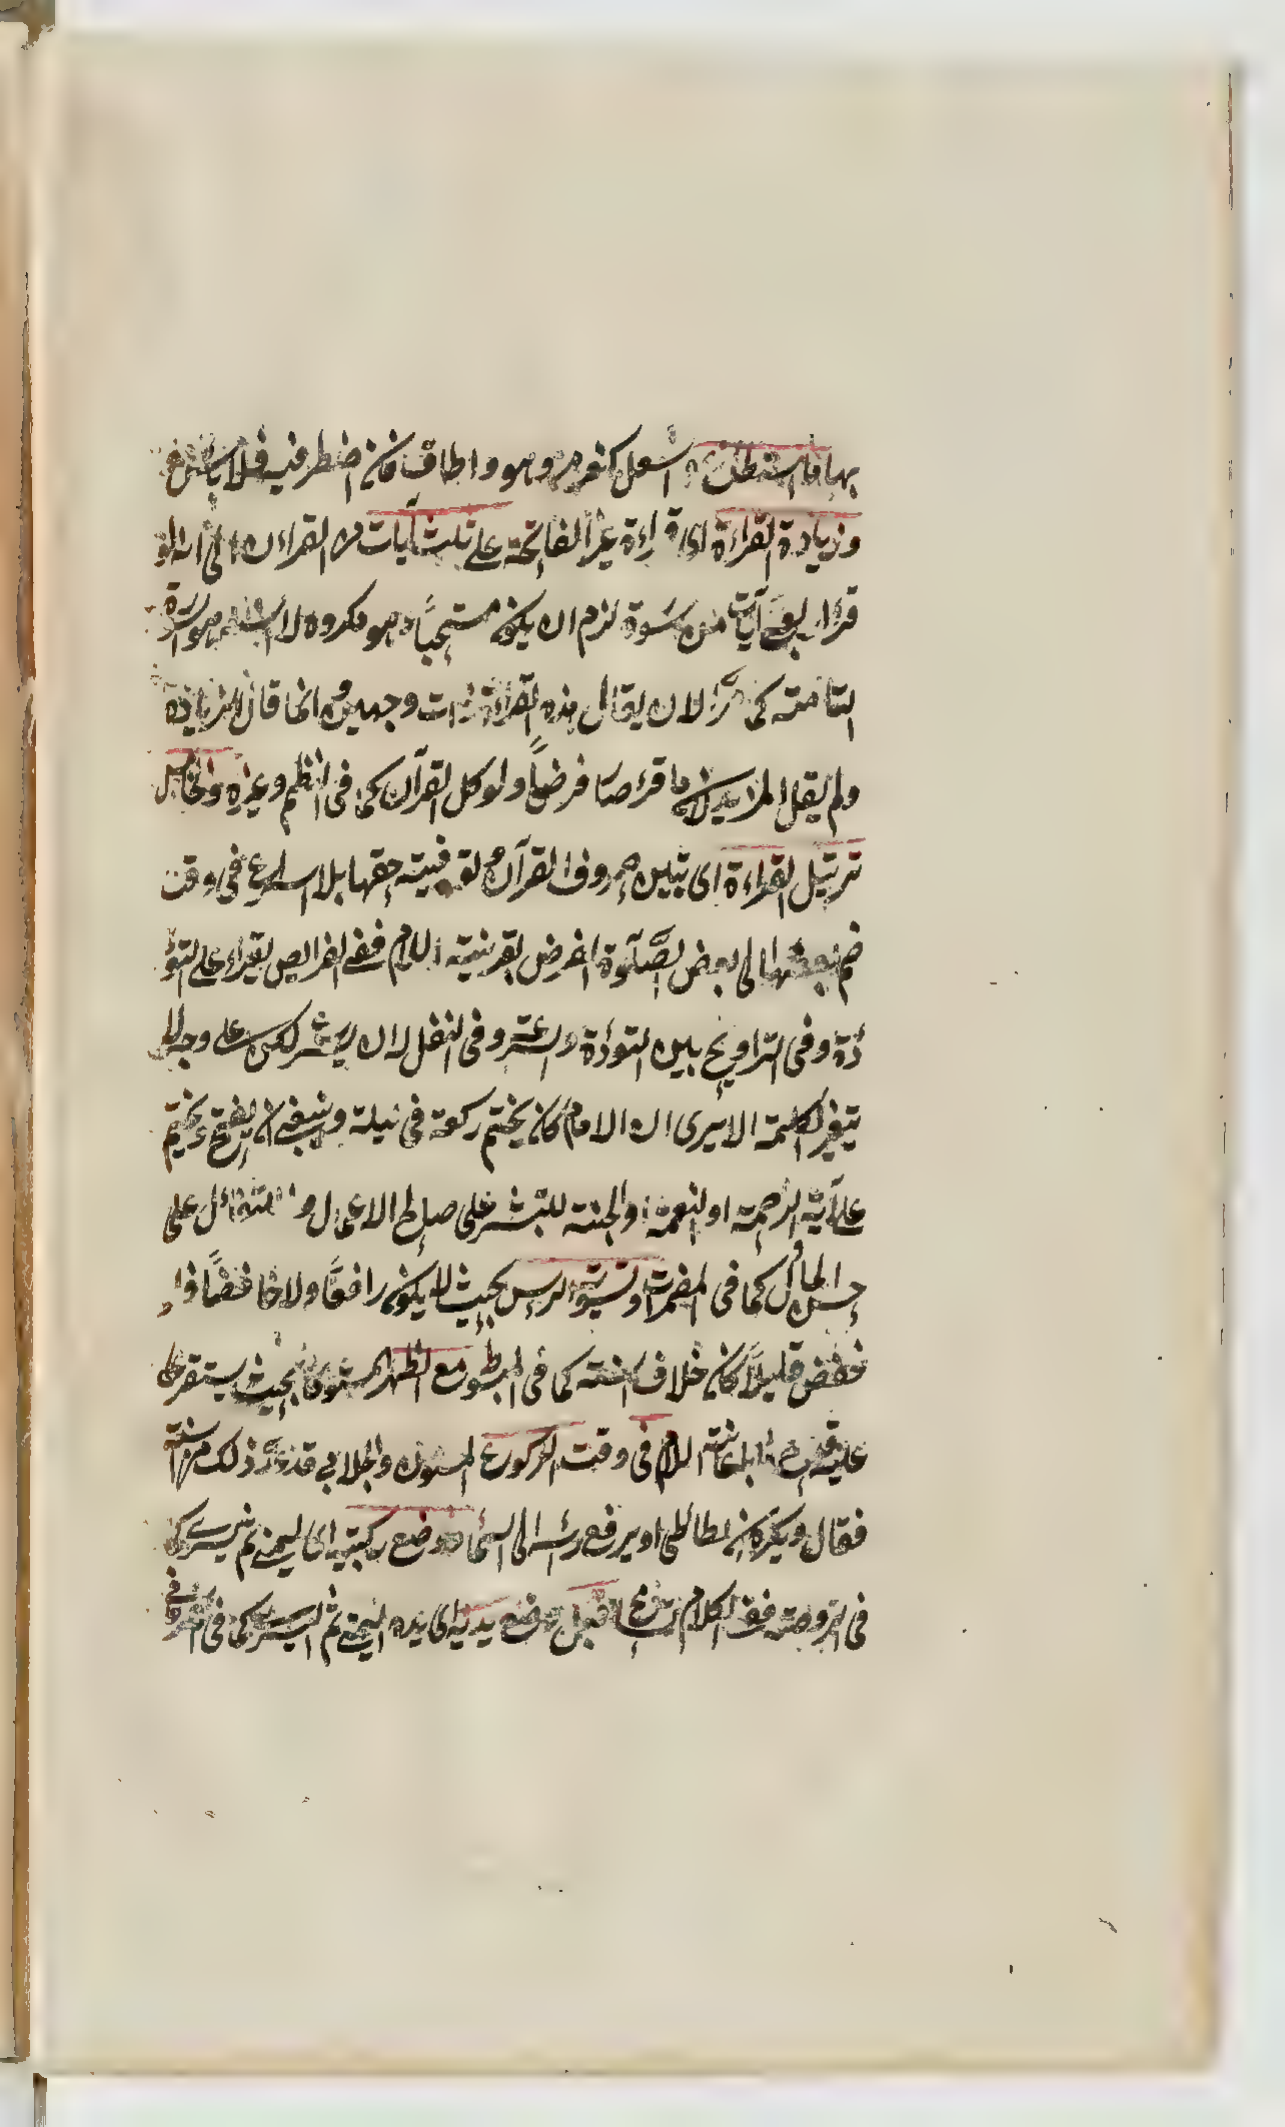 بها ما استطاع والسعال كغيره وهو ما اطاق فان اضطر فيه فلا باس
وزيادة القراءة اى قراءة غير الفاتحة على ثلث آيات من القراءن الى انه لو
قراء اربع آيات من سورة لزم ان يكون مستحبًا وهو مكروه لان السنة هو السورة
التامة كما مر الا ان يقال هذه القراءة ذات وجهين وانما قال الزيادة
ولم يقل المزيد لان ما قرء صار فرضًا ولو كل القرآن كما فى النظم وغيره
ترتيل القراءة اى تبيين حروف القرآن وتوفية حقها بلا اسراع فى وقت
ضم بعضها الى بعض الصلوة الفرض بقرينة اللام ففى الفرايض يقراء على التؤ
دة وفى التراويح بين التودة والسرعة وفى النفل له ان يسرع لكن على وجه لا
يتغير الكلمة الا يرى ان الامام كان يختم ركعة فى ليلة وينبغى ان يفتح ويختم
على آية الرحمة او النعمة او الجنة للتبشر على صالح الاعمال والتفائل على
حسن المال كما فى المضمرات وتسوية الرأس بحيث لا يكون رافعًا ولا خافضًا
خفض قليلاً كان خلاف السنة كما فى المبسوط مع الظهر المستوى بحيث يستقر
عليه قدح اللام فى وقت الركوع المسنون والجلابى قد ذلك من السنة
فقال ويكره ان يطاطى او يرفع رأسه الى السماء ووضع ركبتيه اى اليمنى ثم اليسرى كما
فى الروضة ففى الكلام قبل وضع يديه اى يده اليمنى ثم اليسرى كما فى